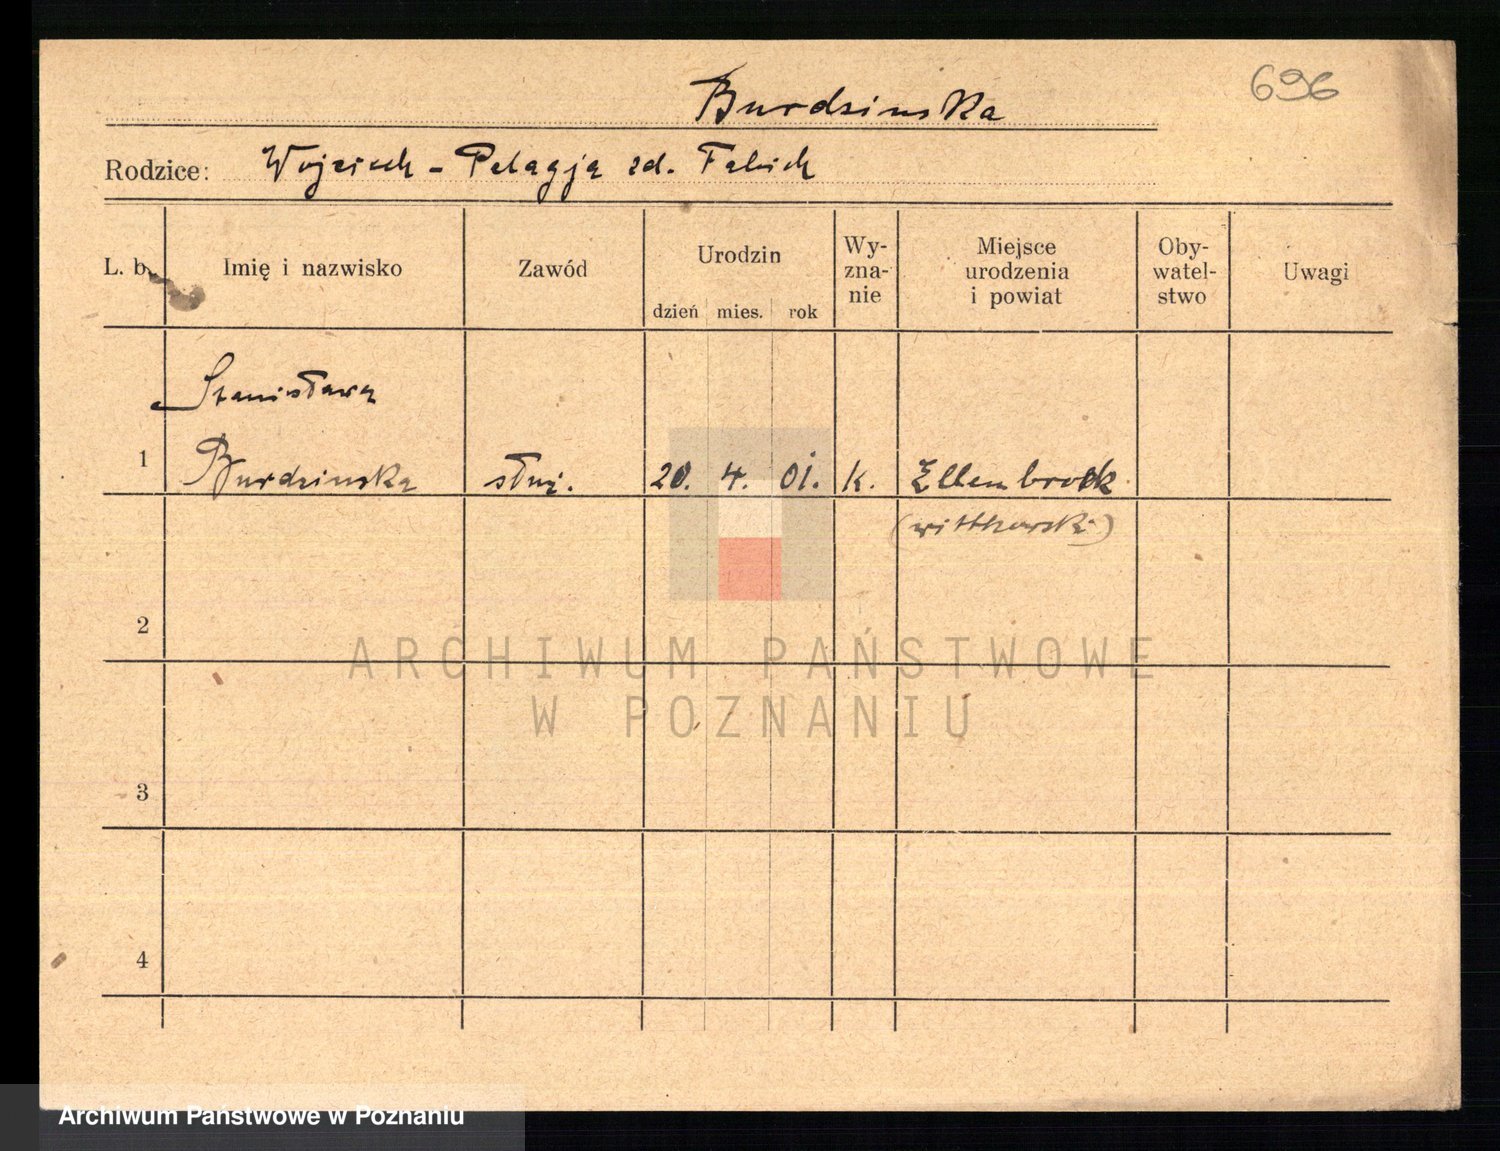 696
Burdzinska
Rodzice: Wojciech - Pelagja zd. Fabich
L. b. Imię i nazwisko Zawód Urodzin Wy-zna-nie Miejsce urodzenia i powiat Oby-watel-stwo Uwagi
dzień mies. rok
Stanisława
1 Burdzinska służ. 20. 4. 01. K. Ellenbrock
(wittkowski)
2
3
4
ARCHIWUM PAŃSTWOWE
W POZNANIU
Archiwum Państwowe w Poznaniu